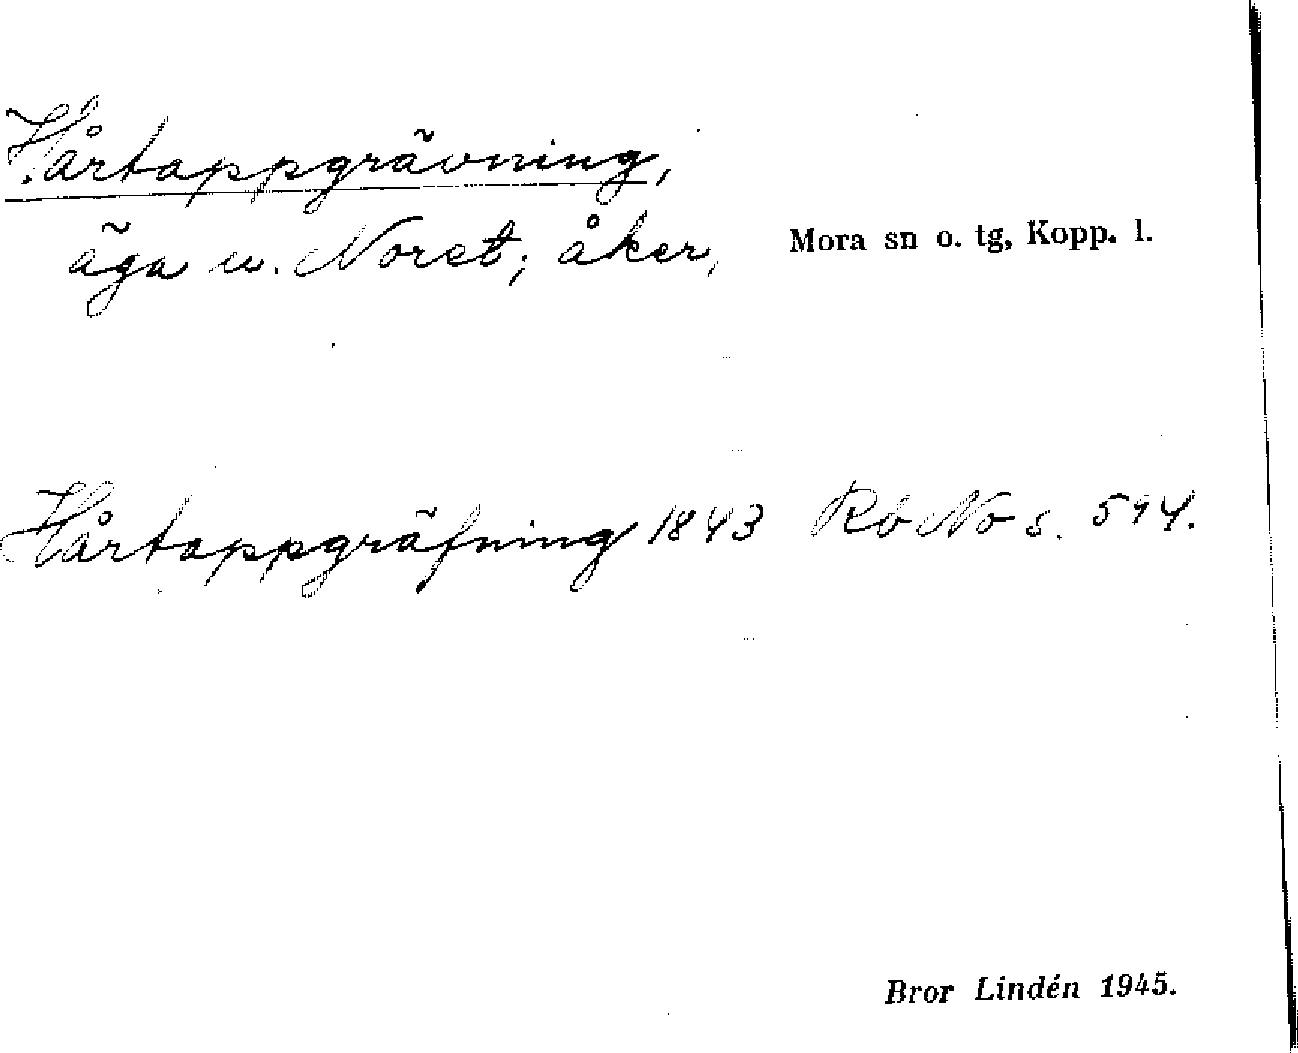 Hårtappgrävning,
äga u. Noret; åker, Mora sn o. tg, Kopp. l.
Hårtappgräfning 1843 Rb No s. 594.
Bror Lindén 1945.